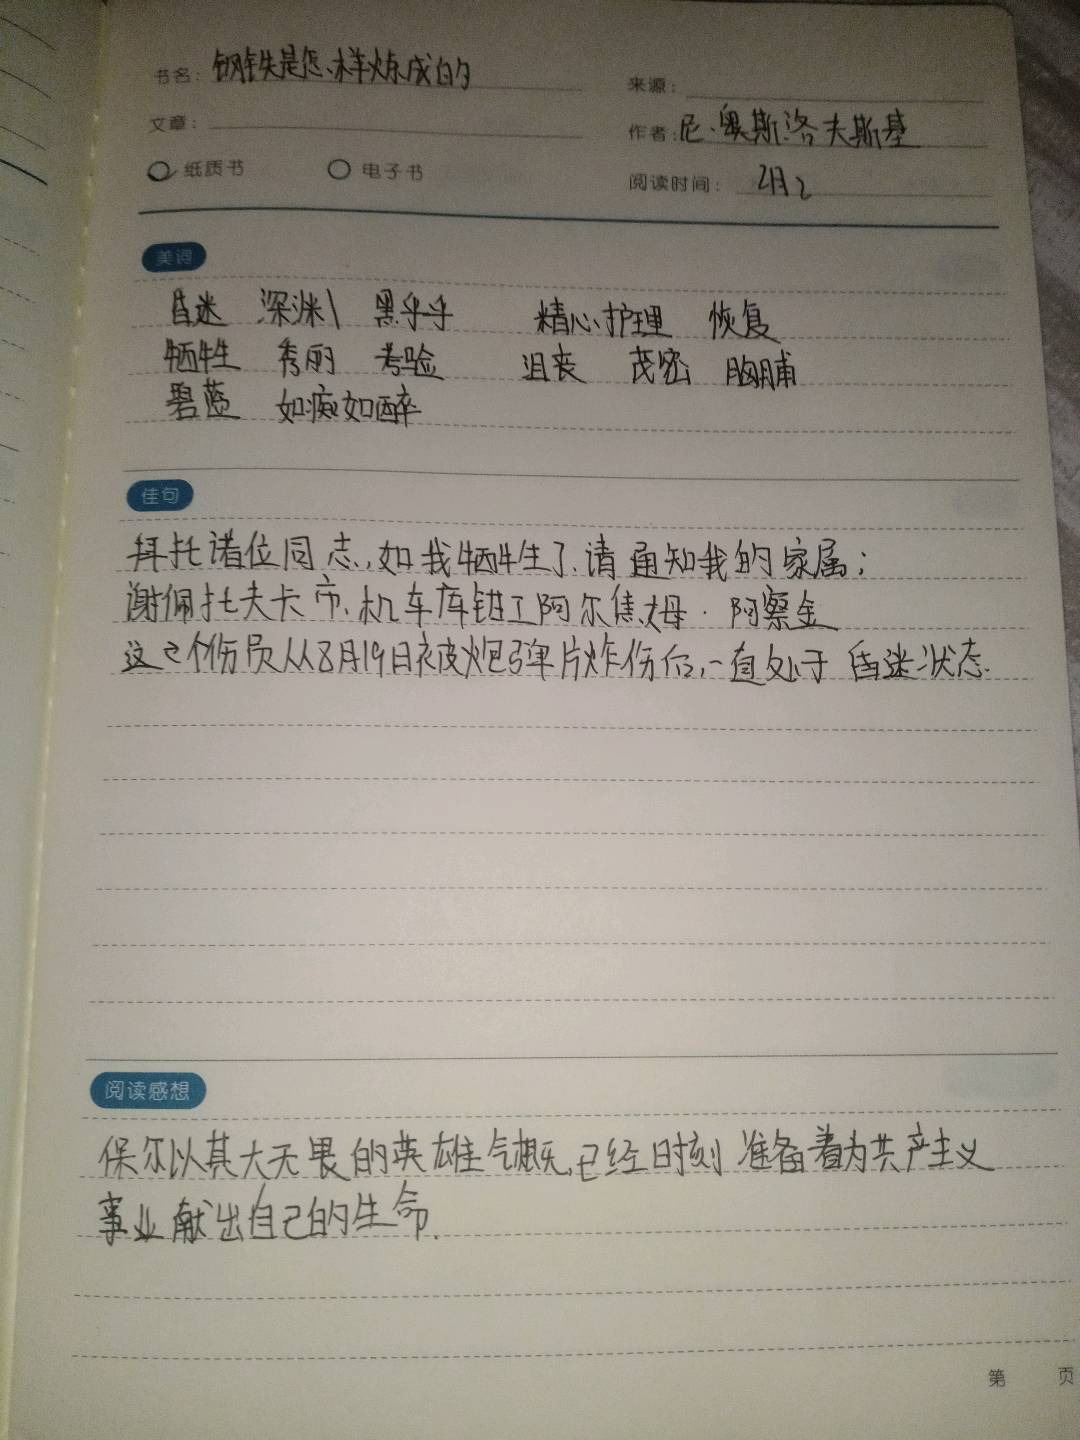 书名：钢铁是怎样炼成的 来源：
文章： 作者：尼·奥斯洛夫斯基
纸质书 电子书 阅读时间：
美词
昏迷 深渊 黑乎乎 精心护理 恢复
牺牲 秀丽 考验 沮丧 茂密 胸脯
碧蓝 如痴如醉
佳句
拜托诸位同志，如我牺牲了，请通知我的家属：
谢佩托夫卡市，机车库钳工阿尔焦姆·阿察金
这个伤员从8月19日被炮弹片炸伤后，一直处于昏迷状态.
阅读感想
保尔以其大无畏的英雄气概，已经时刻准备着为共产主义
事业献出自己的生命.
第 页